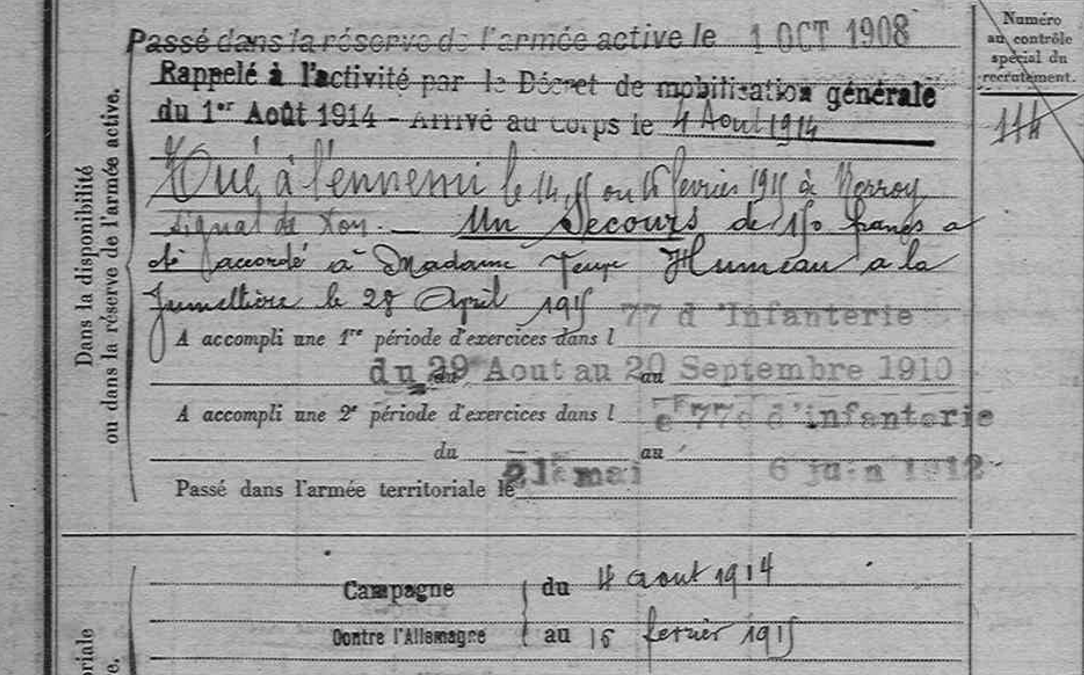 Passé dans la réserve de l'armée active le 1 OCT 1908
Numéro
au contrôle
spécial du
recrutement.
114
Rappelé à l'activité par le Décret de mobilisation générale
du 1er Août 1914 - Arrivé au Corps le 4 Aout 1914
Tué à l'ennemi le 14, 15 ou 16 fevrier 1915 à Norroy
signal de Xon. — Un Secours de 150 francs a
été accordé à Madame Veuve Humeau a la
Jumellière le 28 April 1915
77 d'Infanterie
A accompli une 1re période d'exercices dans l
du 29 Aout au 20 Septembre 1910
A accompli une 2e période d'exercices dans l e 77e d'infanterie
du au
21 mai 6 juin 1912
Passé dans l'armée territoriale le
Dans la disponibilité
ou dans la réserve de l'armée active.
Campagne du 4 aout 1914
Contre l'Allemagne au 16 fevrier 1915
oriale
e.